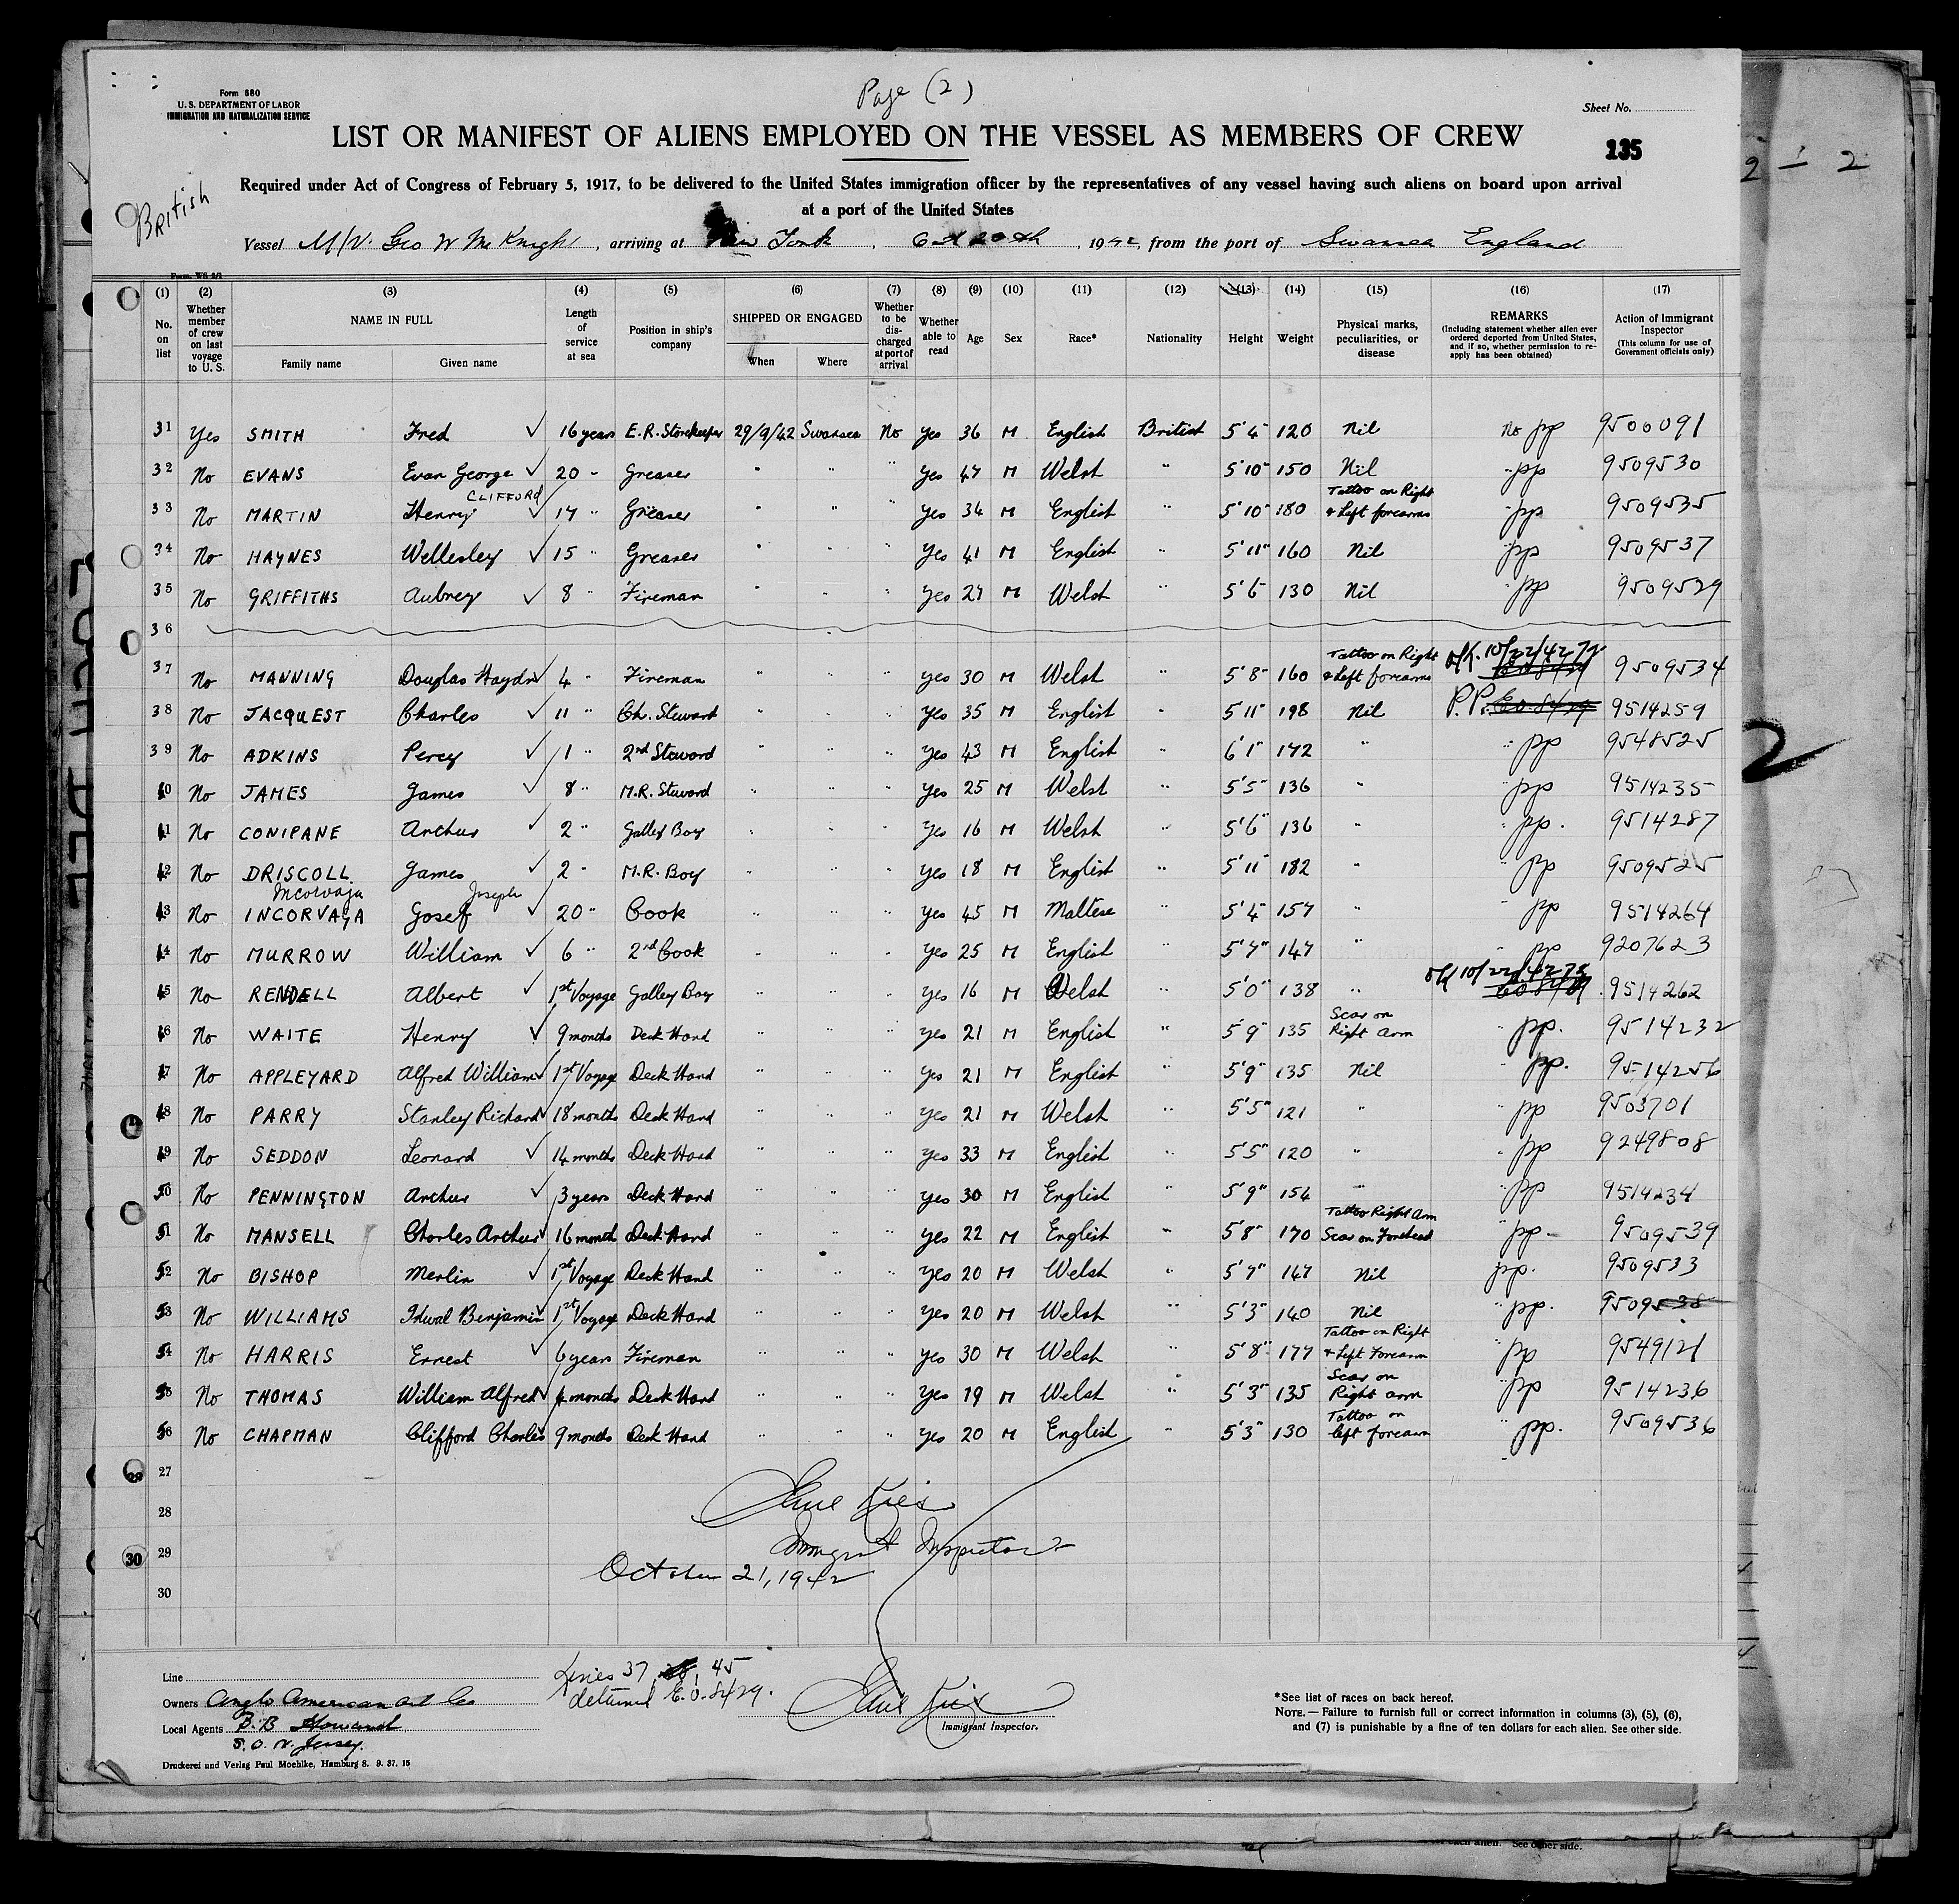 Page (2)
Form 680
U.S. DEPARTMENT OF LABOR
IMMIGRATION AND NATURALIZATION SERVICE
Sheet No.
LIST OR MANIFEST OF ALIENS EMPLOYED ON THE VESSEL AS MEMBERS OF CREW
135
2 - 2
British
Required under Act of Congress of February 5, 1917, to be delivered to the United States immigration officer by the representatives of any vessel having such aliens on board upon arrival
at a port of the United States
Vessel M/V. Geo W McKnight, arriving at New York, Oct 20th, 1942, from the port of Swansea England
Form. WS 3/1
(1) (2) (3) (4) (5) (6) (7) (8) (9) (10) (11) (12) (13) (14) (15) (16) (17)
No. on list Whether member of crew on last voyage to U. S. NAME IN FULL Family name Given name Length of service at sea Position in ship's company SHIPPED OR ENGAGED When Where Whether to be discharged at port of arrival Whether able to read Age Sex Race* Nationality Height Weight Physical marks, peculiarities, or disease REMARKS (Including statement whether alien ever ordered deported from United States, and if so, whether permission to reapply has been obtained) Action of Immigrant Inspector (This column for use of Government officials only)
31 Yes SMITH Fred ✓ 16 years E.R. Storekeeper 29/9/42 Swansea No Yes 36 M English British 5'4" 120 Nil No pp 9500091
32 No EVANS Evan George ✓ 20 " Greaser " " " Yes 47 M Welsh " 5'10" 150 Nil " pp 9509530
33 No MARTIN Henry CLIFFORD ✓ 17 " Greaser " " " Yes 34 M English 5'10" 180 Tattoo on Right & Left forearms " pp 9509535
34 No HAYNES Wellesley ✓ 15 " Greaser " " " Yes 41 M English " 5'11" 160 Nil " pp 9509537
35 No GRIFFITHS Aubrey ✓ 8 " Fireman " " " Yes 27 M Welsh " 5'6" 130 Nil " pp 9509529
36
37 No MANNING Douglas Haydn ✓ 4 " Fireman " " " Yes 30 M Welsh " 5'8" 160 Tattoo on Right & Left forearms 10/22/42 9509534
38 No JACQUEST Charles ✓ 11 " Ch. Steward " " " Yes 35 M English " 5'11" 198 Nil P.P. E.O. 8429 9514259
39 No ADKINS Percy ✓ 1 " 2nd Steward " " " Yes 43 M English " 6'1" 172 " " pp 9548525
40 No JAMES James ✓ 8 " M.R. Steward " " " Yes 25 M Welsh " 5'5" 136 " " pp 9514235
41 No CONIPANE Arthur ✓ 2 " Galley Boy " " " Yes 16 M Welsh " 5'6" 136 " " pp. 9514287
42 No DRISCOLL James ✓ 2 " M.R. Boy " " " Yes 18 M English " 5'11" 182 " " pp 9509525
Incorvaja Joseph
43 No INCORVAGA Gosef ✓ 20 " Cook " " " Yes 45 M Maltese " 5'4" 157 " " pp 9514264
44 No MURROW William ✓ 6 " 2nd Cook " " " Yes 25 M English " 5'7" 147 " " pp 9207623
45 No RENDELL Albert ✓ 1st Voyage Galley Boy " " " Yes 16 M Welsh " 5'0" 138 " 10/22/42 9514262
46 No WAITE Henry ✓ 9 months Deck Hand " " " Yes 21 M English " 5'9" 135 Scar on Right arm " pp. 9514232
47 No APPLEYARD Alfred William ✓ 1st Voyage Deck Hand " " " Yes 21 M English " 5'9" 135 Nil " pp. 9514256
48 No PARRY Stanley Richard ✓ 18 months Deck Hand " " " Yes 21 M Welsh " 5'5" 121 " " pp 9503701
49 No SEDDON Leonard ✓ 14 months Deck Hand " " " Yes 33 M English " 5'5" 120 " " pp 9249808
50 No PENNINGTON Arthur ✓ 3 years Deck Hand " " " Yes 30 M English " 5'9" 154 " " pp 9514234
51 No MANSELL Charles Arthur ✓ 16 months Deck Hand " " " Yes 22 M English " 5'8" 170 Tattoo Right Arm Scar on Forehead " pp 9509539
52 No BISHOP Merlin ✓ 1st Voyage Deck Hand " " " Yes 20 M Welsh " 5'7" 147 Nil pp. 9509533
53 No WILLIAMS Idwal Benjamin ✓ 1st Voyage Deck Hand " " " Yes 20 M Welsh " 5'3" 140 Nil " pp. 9509538
54 No HARRIS Ernest ✓ 6 years Fireman " " " Yes 30 M Welsh " 5'8" 177 Tattoo on Right & Left Forearm " pp 9549121
55 No THOMAS William Alfred ✓ 4 months Deck Hand " " " Yes 19 M Welsh " 5'3" 135 Scar on Right arm " pp 9514236
56 No CHAPMAN Clifford Charles 9 months Deck Hand " " " Yes 20 M English " 5'3" 130 Tattoo on left forearm " pp. 9509536
27
28
29
30
30
Immigrant Inspector
October 21, 1942
2
Line
Lines 37, 38, 45
detained E.O. 8429.
Owners Anglo American Oil Co
Local Agents B.B Howard
S.O. N. Jersey.
Immigrant Inspector.
*See list of races on back hereof.
NOTE.— Failure to furnish full or correct information in columns (3), (5), (6),
and (7) is punishable by a fine of ten dollars for each alien. See other side.
Druckerei und Verlag Paul Moehlke, Hamburg 8. 9. 37. 15
each alien. See other side.